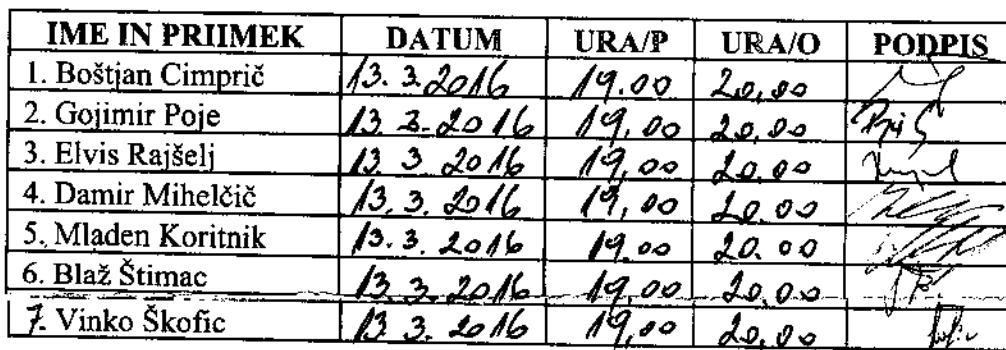 IME IN PRIIMEK DATUM URA/P URA/O PODPIS
1. Boštjan Cimprič 13. 3. 2016 19.00 20,00
2. Gojimir Poje 13. 3. 2016 19,00 20,00
3. Elvis Rajšelj 13. 3. 2016 19,00 20,00
4. Damir Mihelčič 13. 3. 2016 19,00 20.00
5. Mladen Koritnik 13. 3. 2016 19.00 20.00
6. Blaž Štimac 13. 3. 2016 19,00 20,00
7. Vinko Škofic 13. 3. 2016 19,00 20,00